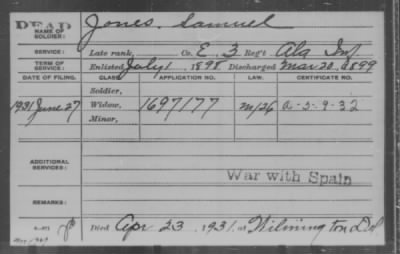 DEAD Jones, Samuel
NAME OF
SOLDIER:
SERVICE: Late rank, Co. E. 3 Reg't Ala Inf
TERM OF
SERVICE: Enlisted July 1 1898 Discharged Mar 20, 1899
DATE OF FILING. CLASS APPLICATION NO. LAW. CERTIFICATE NO.
Soldier,
1931 June 27 Widow, 1697177 m/26 a-5-9-32
Minor,
ADDITIONAL
SERVICES:
War with Spain
REMARKS:
Died Apr 23 1931, at Wilmington Del